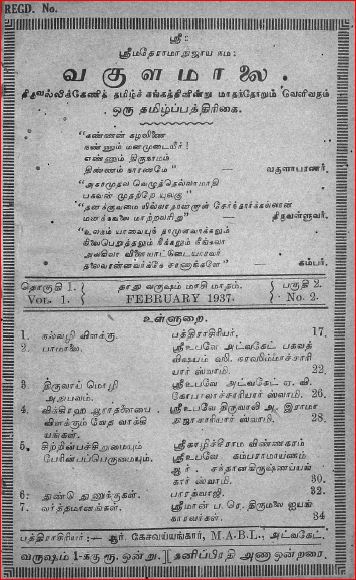 REGD. No.
ஸ்ரீ:
ஸ்ரீமதேராமாநுஜாய நம:
வகுளமாலை.
திருவல்லிக்கேணித் தமிழ்ச் சங்கத்தினின்று மாதந்தோறும் வெளிவரும்
ஒரு தமிழ்ப்பத்திரிகை.
"கண்ணன் கழலிணை
நண்ணும் மனமுடையீர்!
எண்ணும் திருநாமம்
திண்ணம் நாரணமே" — வகுளாபரணர்.
"அகரமுதல வெழுத்தெல்லாமாதி
பகவன் முதற்றே யுலகு"
"தனக்குவமை யில்லாதான்றாள் சேர்ந்தார்க்கல்லான்
மனக்கவலை மாற்றலரிது" — திருவள்ளுவர்.
"உலகம் யாவையுந் தாமுளவாக்கலும்
நிலைபெறுத்தலும் நீக்கலும் நீங்கலா
அலகிலா விளையாட்டுடையாரவர்
தலைவரன்னவர்க்கே சரணாங்களே" — கம்பர்.
தொகுதி 1. தாது வருஷம் மாசி மாதம். பகுதி 2.
VOL. 1. FEBRUARY 1937. No. 2.
உள்ளுறை.
1. கல்வழி விளக்கு. பத்திராதிபர், 17.
2. பாமாலை. ஸ்ரீ உபவே அட்வகேட் பகவத்
விஷயம் வி. நரஸிம்மாச்சாரி
யார் ஸ்வாமி. 22.
3. திருவாய் மொழி ஸ்ரீ உபவே அட்வகேட் ஏ. வி.
அநுபவம். கோபாலாச்சாரியார் ஸ்வாமி. 26.
4. விக்ரஹ ஆராதனையை ஸ்ரீ உபவே திருவாலி அ. இராமா
விளக்கும் வேத வாக்கி நுஜாசாரியார் ஸ்வாமி. 28.
யங்கள்.
5. சிற்றின்பச்சிறுமையும் ஸ்ரீகாழிச்சீராம விண்ணகரம்
பேரின்பப்பெருமையும். ஸ்ரீ உபவே கம்பராமாயணம்
ஆர். சந்தானகிருஷ்ணய்யங்
கார் ஸ்வாமி 30.
6. துண்டு துணுக்குகள். பாரத்வாஜி. 32.
7. வர்த்தமானங்கள். ஸ்ரீமான் ப. ரெ. திருமலை ஐயங்
காரவர்கள். 34
பத்திராதிபர்:— ஆர். கேசவய்யங்கார், M.A.B.L., அட்வகேட்.
வருஷம் 1-க்கு ரூ. ஒன்று.] [தனிப்பிரதி அணா ஒன்றரை.